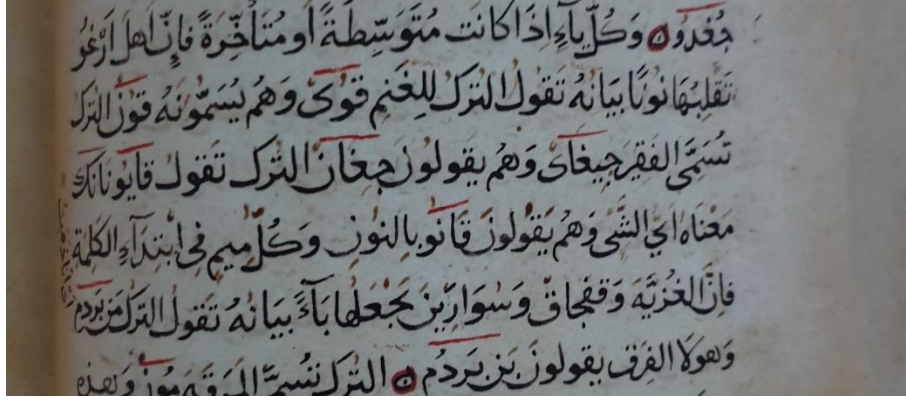 جُغْدُو ۞ وَكُلُّ يَاءٍ اِذَا كَانَت مُتَوَسِّطَةً اَو مُتَأَخِّرَةً فَاِنَّ اَهلَ اَرْغُو
تَقْلِبُهَا نُونًا بَيَانُهُ تَقُولُ التُرْكُ لِلغَنَمِ قُوىْ وَهُم يُسَمُّونَهُ قُونْ التُرك
تُسَمِّى الفَقِيرَ جِيغَاىْ وَهُم يَقُولُونَ جِغَانْ التُرْك تَقُولُ قَايُو نَانكْ
مَعْنَاه اَىُّ الشَّىِ وَهُم يَقُولُونَ قَانُو بِالنُونِ وَكُلُّ مِيمٍ فى ابتِدَآءِ الكَلِمَةِ
فَاِنَّ الغُزِيَّه وَقِفْجَاقْ وَسُوَارِيْنَ يَجْعَلُهَا بَاءً بَيَانُهُ تَقُولُ التُركُ مَن بَرْدَم
وَهولا الفِرَق يَقُولُونَ بَنْ بَرْدُمْ ۞ التُركُ تُسَمِّى المَرَقَه مُونْ وَهَذِهِ